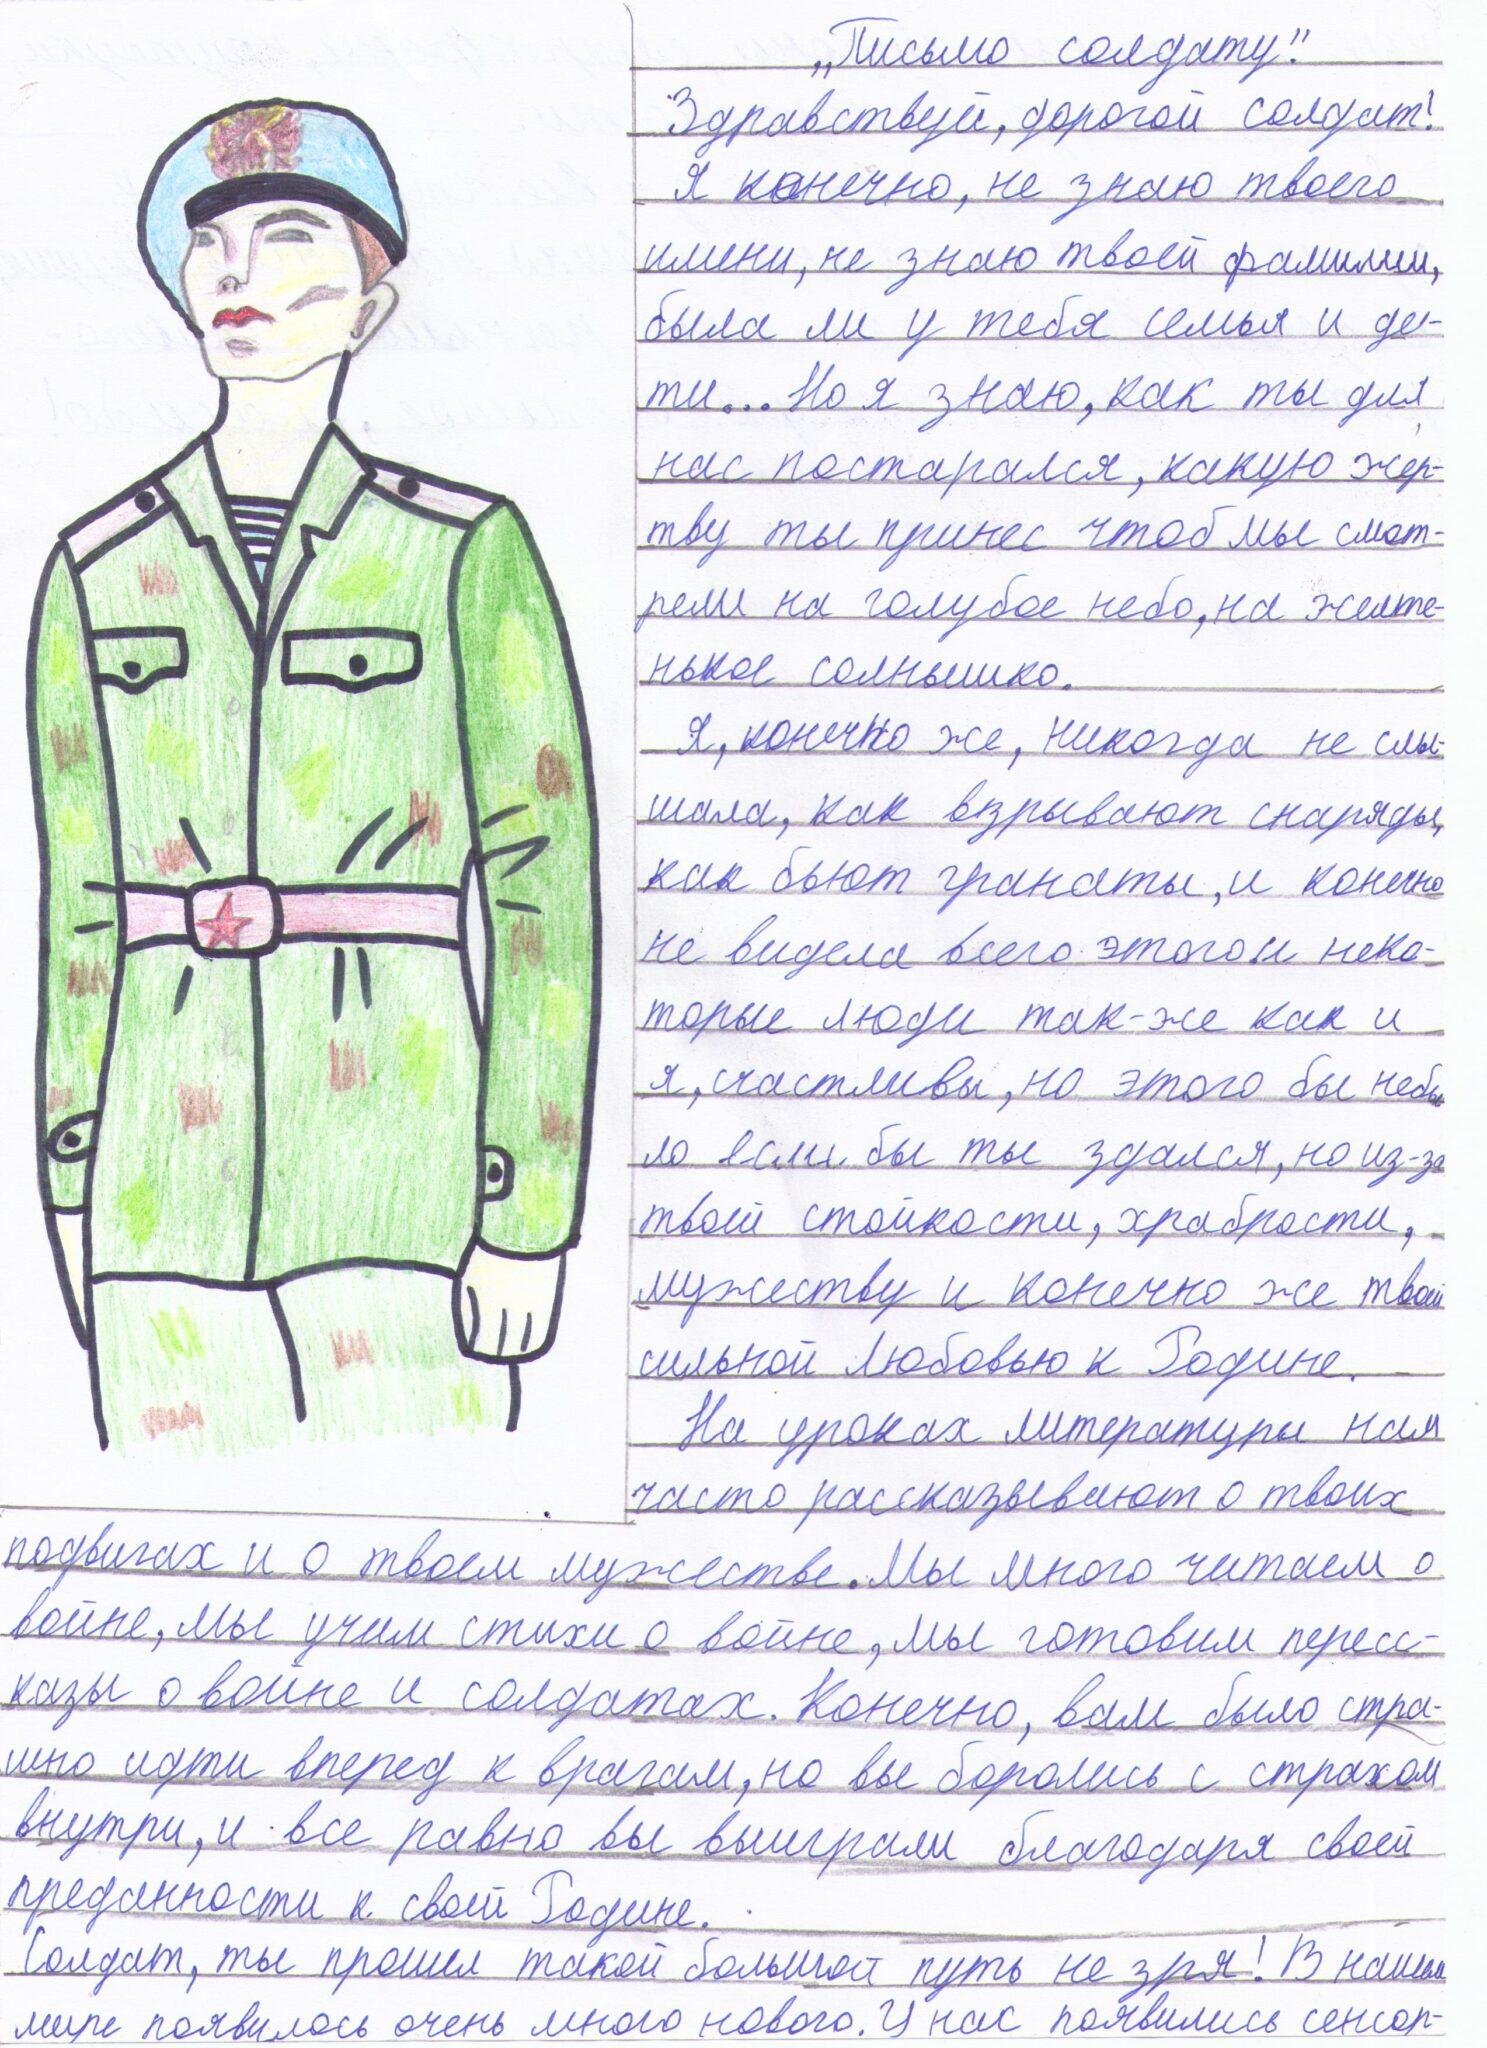 „Письмо солдату".
Здравствуй, дорогой солдат!
Я конечно, не знаю твоего
имени, не знаю твоей фамилии,
была ли у тебя семья и де-
ти... Но я знаю, как ты для
нас постарался, какую жер-
тву ты принес чтоб мы смот-
рели на голубое небо, на желте-
нькое солнышко.
Я, конечно же, никогда не слы-
шала, как взрывают снаряды,
как бьют гранаты, и конечно
не видела всего этого и неко-
торые люди так-же как и
я, счастливы, но этого бы небы
ло если бы ты здался, но из-за
твоей стойкости, храбрости,
мужеству и конечно же твоей
сильной любовью к Родине.
На уроках литературы нам
часто рассказывают о твоих
подвигах и о твоем мужестве. Мы много читаем о
войне, мы учим стихи о войне, мы готовим пересс-
казы о войне и солдатах. Конечно, вам было стра-
шно идти вперед к врагам, но вы боролись с страхом
внутри, и все равно вы выиграли благодаря своей
преданности к своей Родине.
Солдат, ты прошел такой большой путь не зря! В нашем
мире появилось очень много нового. У нас появились сенсор-